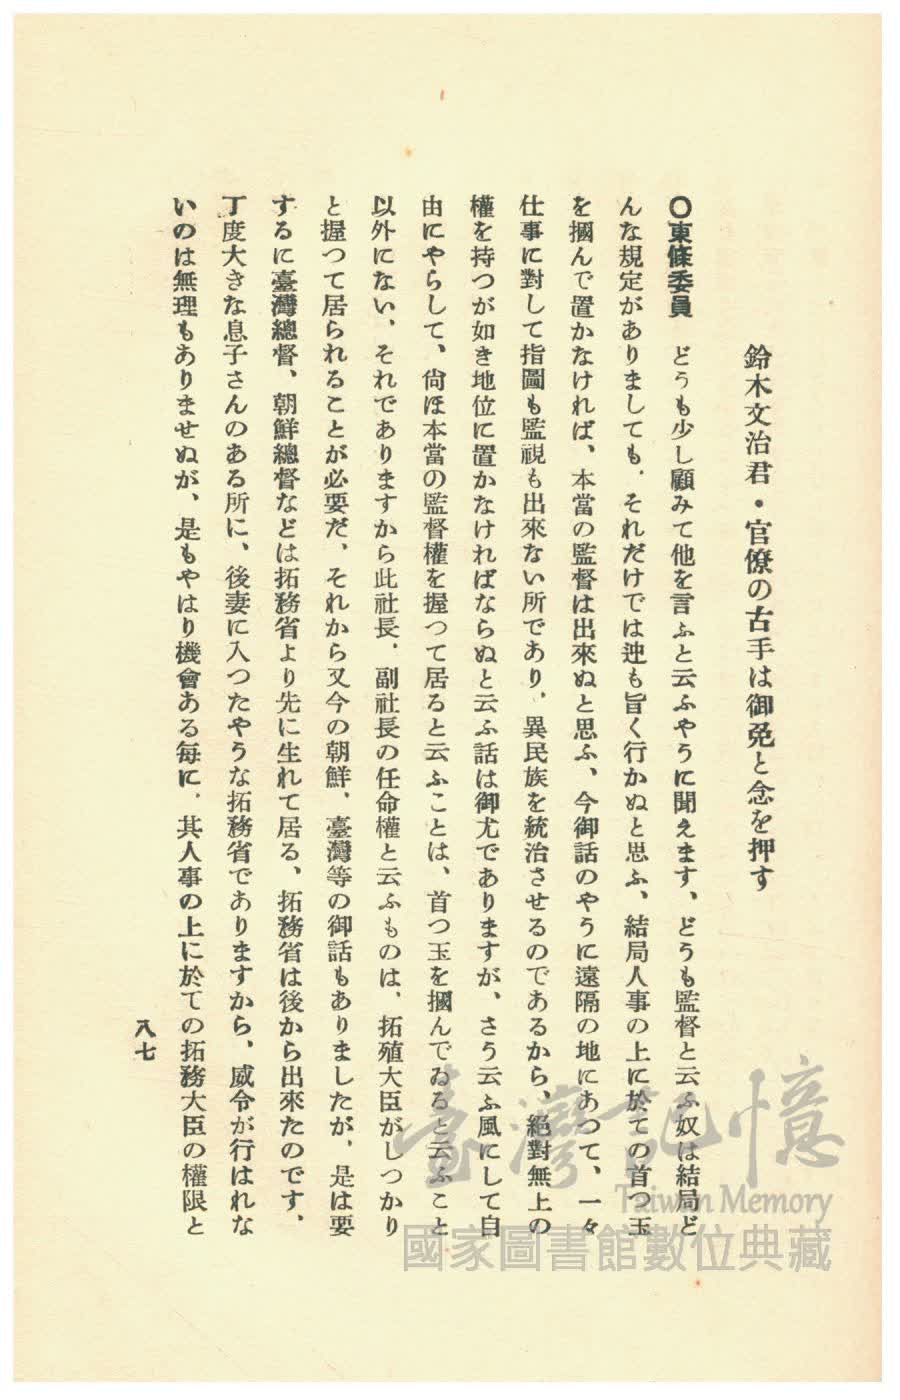 鈴木文治君・官僚の古手は御免と念を押す
〇東條委員　どうも少し顧みて他を言ふと云ふやうに聞えます、どうも監督と云ふ奴は結局ど
んな規定がありましても、それだけでは迚も旨く行かぬと思ふ、結局人事の上に於ての首つ玉
を摑んで置かなければ、本當の監督は出來ぬと思ふ、今御話のやうに遠隔の地にあつて、一々
仕事に對して指圖も監視も出來ない所であり、異民族を統治させるのであるから、絕對無上の
權を持つが如き地位に置かなければならぬと云ふ話は御尤でありますが、さう云ふ風にして自
由にやらして、尙ほ本當の監督權を握つて居ると云ふことは、首つ玉を摑んでゐると云ふこと
以外にない、それでありますから此社長、副社長の任命權と云ふものは、拓殖大臣がしつかり
と握つて居られることが必要だ、それから又今の朝鮮、臺灣等の御話もありましたが、是は要
するに臺灣總督、朝鮮總督などは拓務省より先に生れて居る、拓務省は後から出來たのです、
丁度大きな息子さんのある所に、後妻に入つたやうな拓務省でありますから、威令が行はれな
いのは無理もありませぬが、是もやはり機會ある每に、其人事の上に於ての拓務大臣の權限と
八七
臺灣記憶
Taiwan Memory
國家圖書館數位典藏